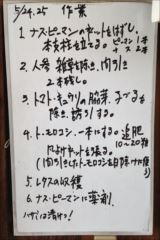 5/24.25 作業
1. ナス・ピーマンのネットをはずし、
本支柱を立てる。ピーマン 1本
ナス 2本
2. 人参 雑草を除き、間引き
2本残し。
3. トマト・キュウリの脇芽、子づるを
除き、誘引する。
4. トーモロコシ 一本にする 追肥
10〜20粒
防鳥ネットを張る。
(間引きしたトーモロコシを
5. レタスの収穫
6. ナス・ピーマンに薬剤